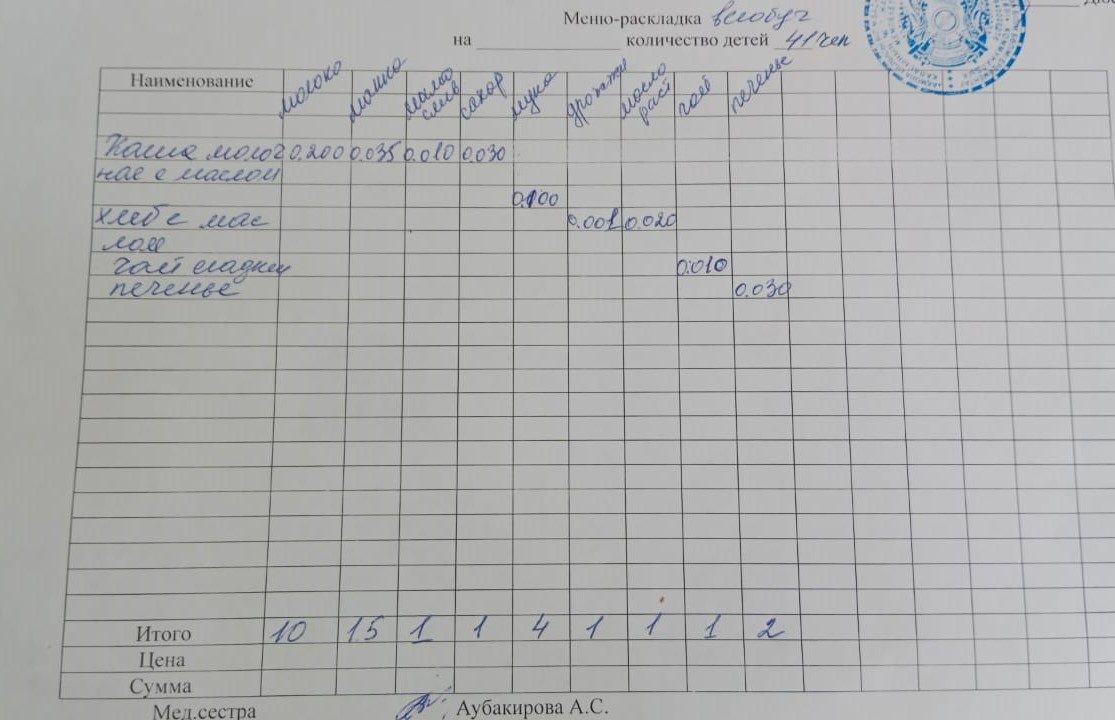 Меню-раскладка всеобуч
на количество детей 41 чел
Наименование молоко манка масло слив сахар мука дрожжи масло раст чай печенье
Каша молоч 0.200 0.035 0.010 0.030
ная с маслом
0.100
хлеб с мас 0.001 0.020
лом
чай сладкий 0.010
печенье 0.030
Итого 10 1.5 1 1 4 1 1 1 2
Цена
Сумма
Мед.сестра Аубакирова А.С.